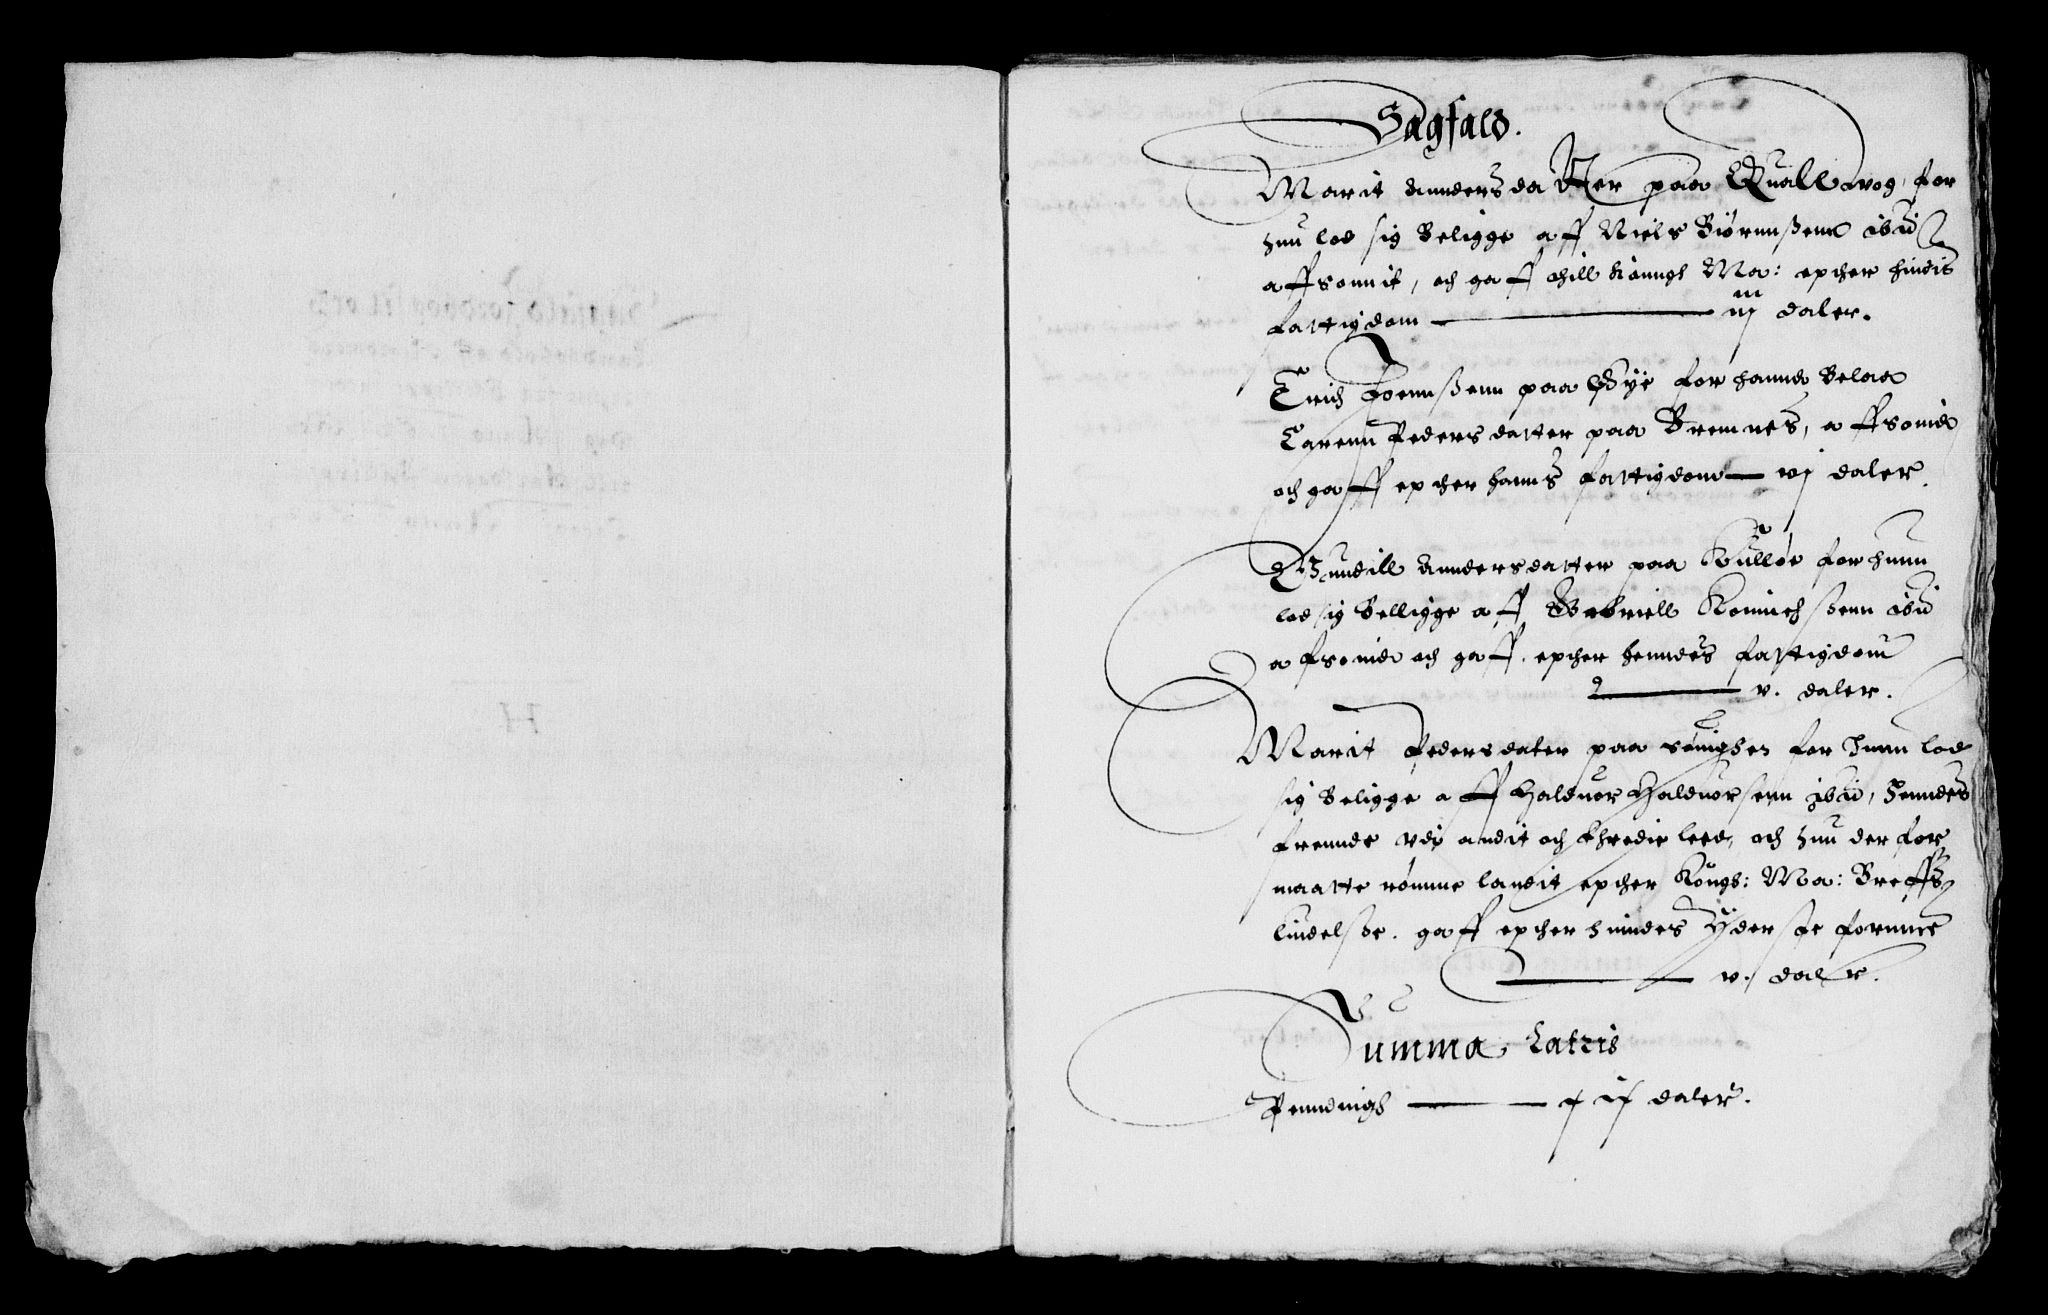 Sagfald.
Marit Anndersdatter paa Quallewog, for
hun lod sig Beligge aff Niels Biørnnßenn ibid
affsonnit, och gaff thill Konngl Ma: epther hindis
fattigdom — iij daler.
Erich Joennßenn paa Bye for hannd Belaa
Carenn Pedersdatter paa Bremnes, affsonid
och gaff epther hanns fattigdom — vj daler.
Gunndill Anndersdatter paa Kulløe for hunn
lod sig Belligge aff Gabriell Konnichßenn ibid
affsonid och gaff epther henndes fattigdom
— v. daler.
Marit Pedersdater paa for hunn lod
sig Beligge aff Halduor Halduorsenn ibid, henndes
frennde vdj andit och thredie leed, och hun der for
maatte rømme landit epther Kongl: Ma: Breffs
lindelße. gaff epther hinndes yderste formue
— v. daler.
Summa Lateris
Penndingh — daler.